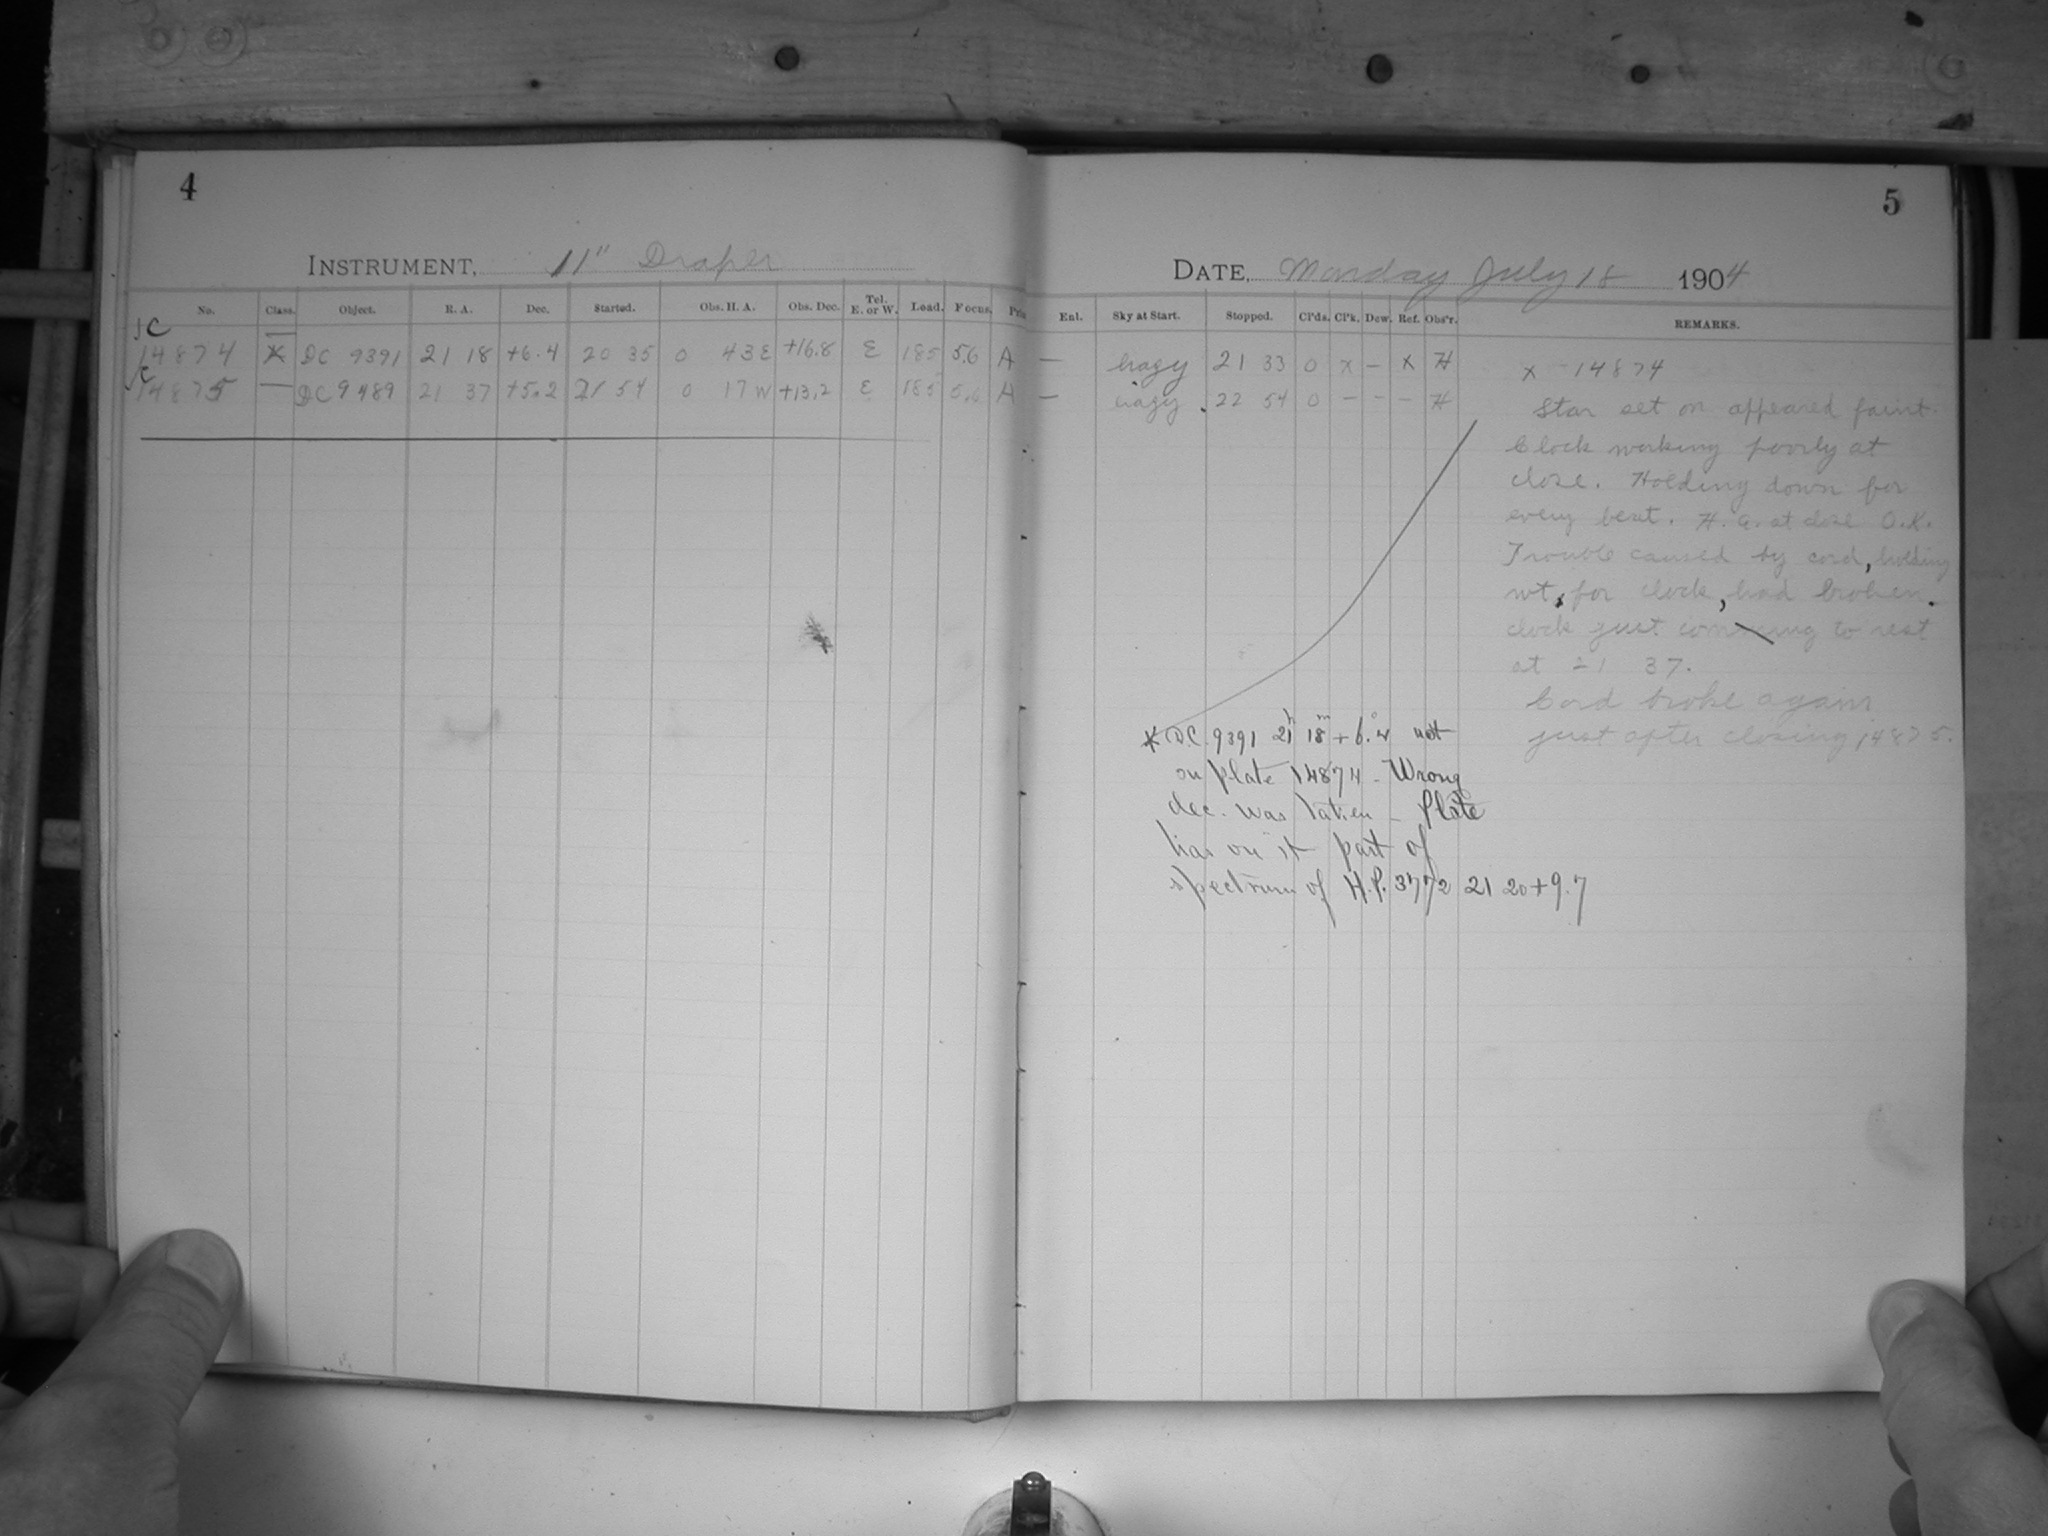 4
INSTRUMENT, 11" Draper
No. Class. Object. R. A. Dec. Started. Obs. H. A. Obs. Dec. Tel. E. or W. Load. Focus.
JC
14874 X DC 9391 21 18 +6.4 20 35 0 43E +16.8 E 185 5.6 A
14875 — DC 9489 21 37 +5.2 21 54 0 17W +13.2 E 185 5.6 A
5
DATE, Monday July 18 1904
Enl. Sky at Start. Stopped. Cl'ds. Cl'k. Dew. Ref. Obs'r. REMARKS.
— hazy 21 33 0 x — x H
— hazy 22 54 0 - - - H
x 14874
Star set on appeared faint.
Clock working poorly at
close. Holding down for
every beat. H. a. at close O.K.
Trouble caused by cord, holding
wt, for clock, had broken.
clock just comming to rest
at 21 37.
Cord broke again
just after closing 14875.
* DC. 9391 21h 18m + 6.°4 not
on plate 14874 - Wrong
dec. was taken - Plate
has on it part of
spectrum of H.P. 3772 21 20 + 9.7